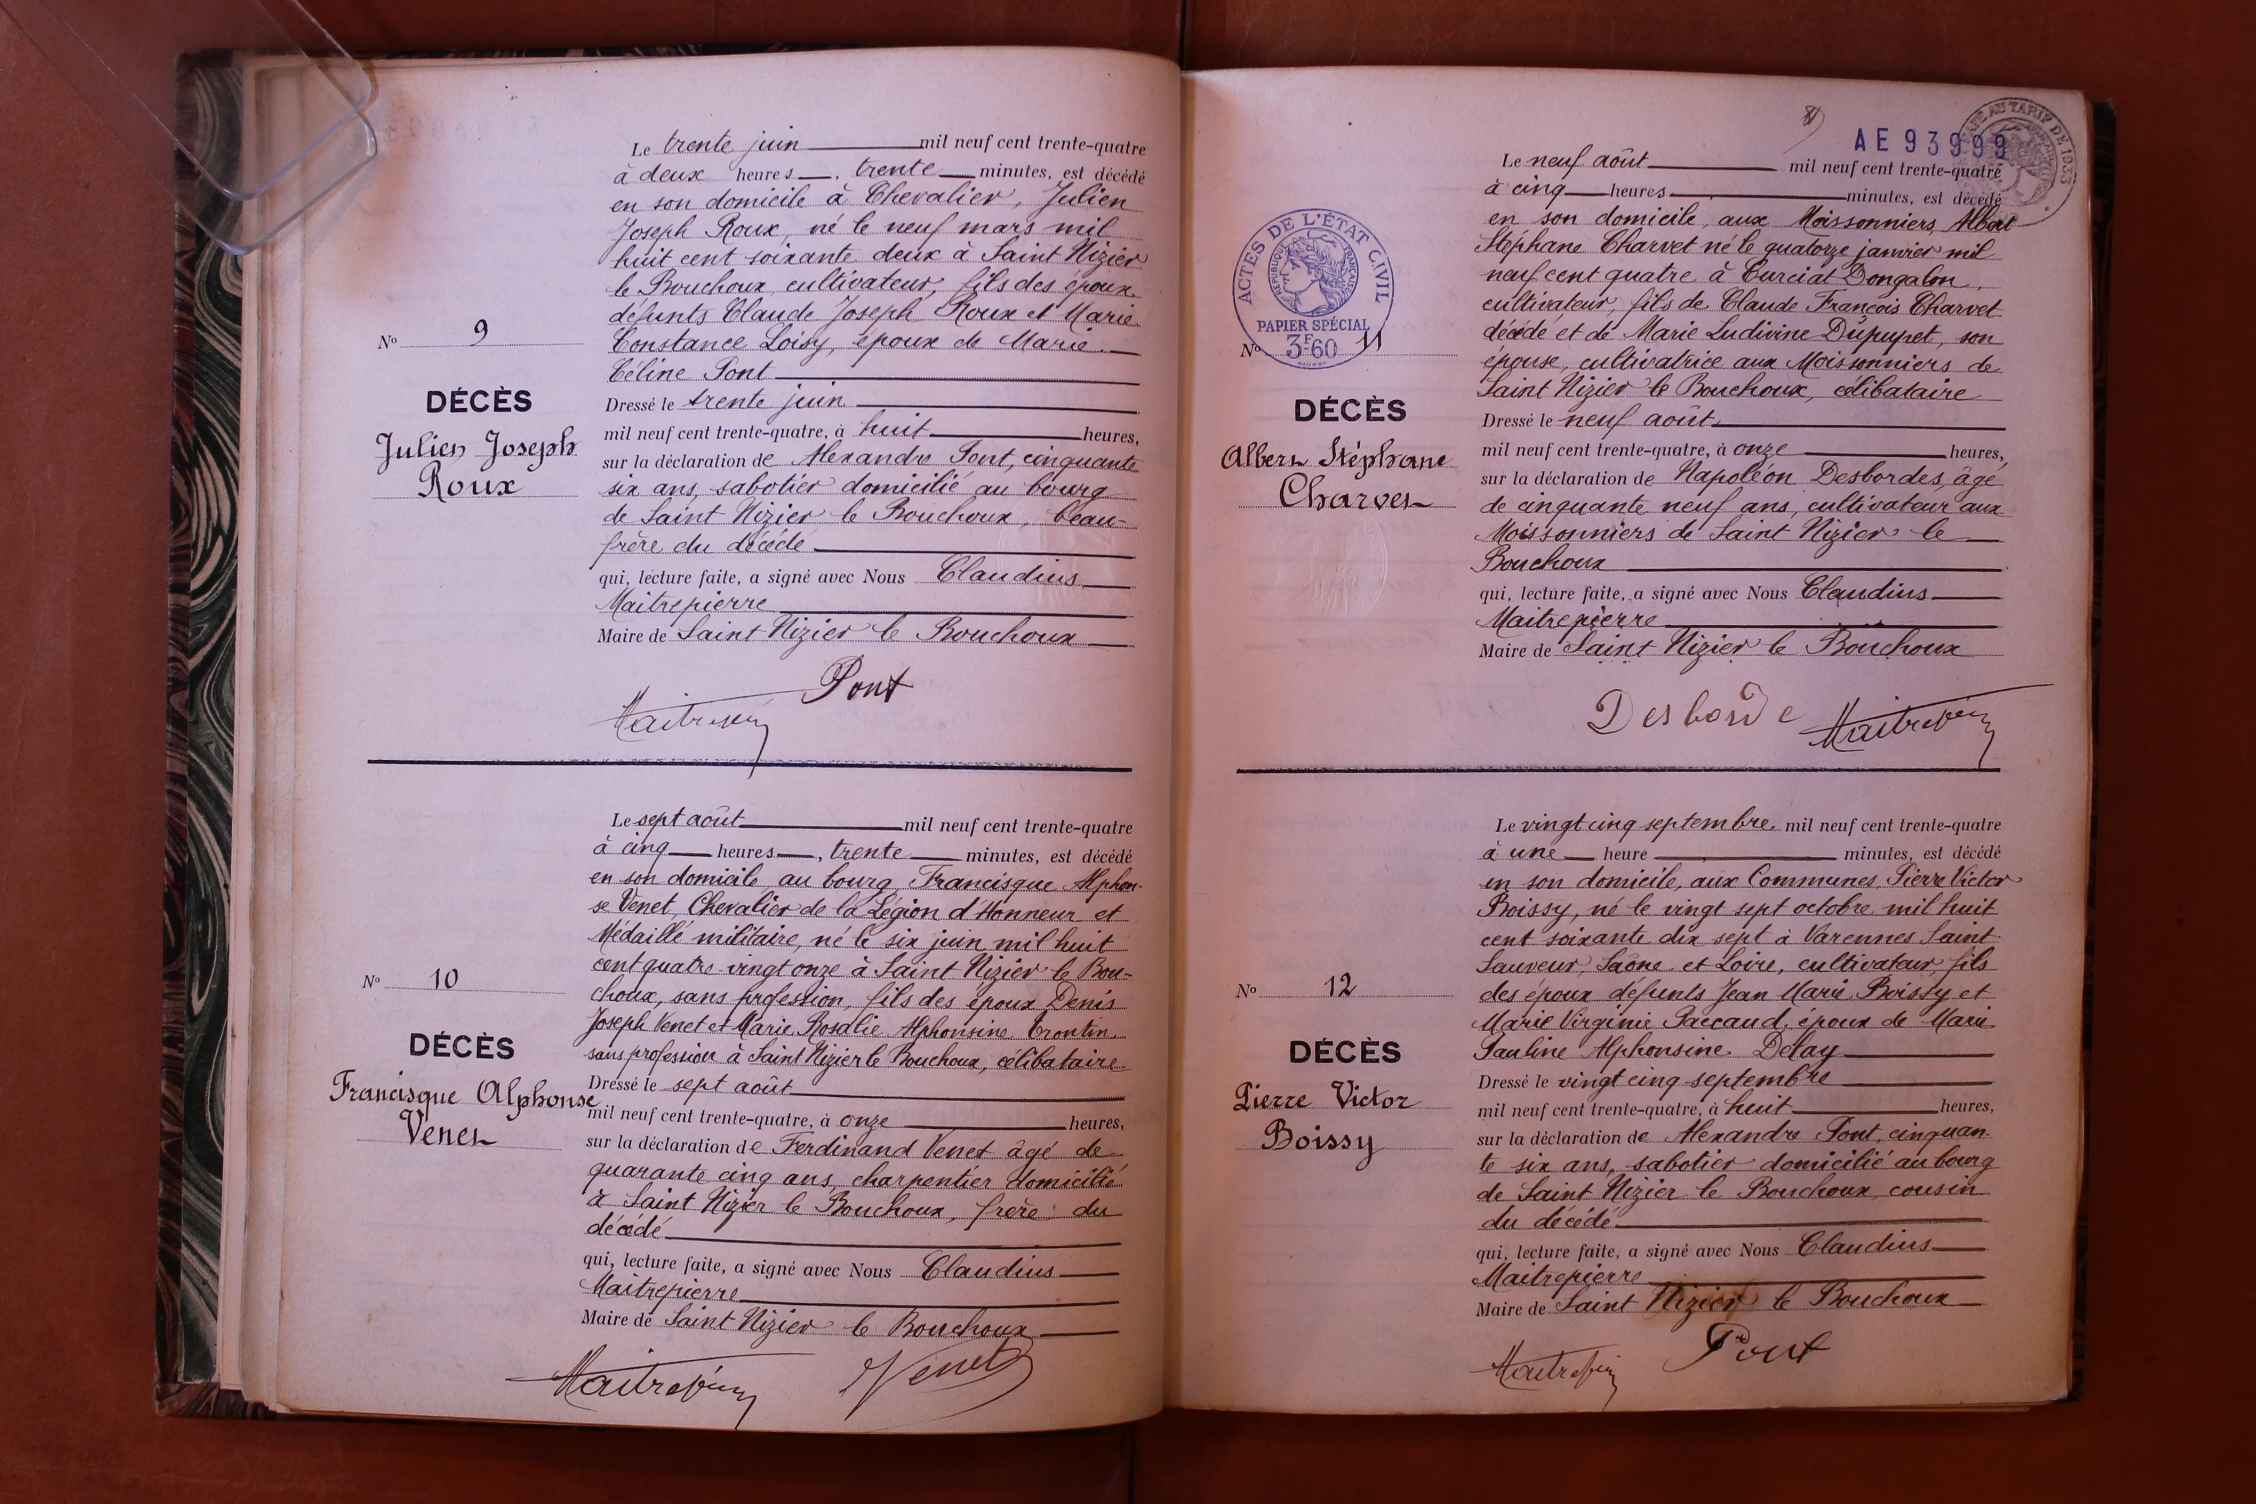 Le trente juin mil neuf cent trente-quatre
à deux heures, trente minutes, est décédé
en son domicile à Chevalier, Julien
Joseph Roux, né le neuf mars mil
huit cent soixante deux à Saint Nizier
le Bouchoux, cultivateur, fils des époux
défunts Claude Joseph Roux et Marie
Constance Loisy, époux de Marie
Céline Pont
No 9
DÉCÈS
Julien Joseph
Roux
Dressé le trente juin
mil neuf cent trente-quatre, à huit heures,
sur la déclaration de Alexandre Pont, cinquante
six ans, sabotier domicilié au bourg
de Saint Nizier le Bouchoux, beau-
frère du décédé
qui, lecture faite, a signé avec Nous Claudius
Maitrepierre
Maire de Saint Nizier le Bouchoux
Pont
Maitrepierre
Le sept août mil neuf cent trente-quatre
à cinq heures, trente minutes, est décédé
en son domicile au bourg, Francisque Alphon-
se Venet, Chevalier de la Légion d'Honneur et
Médaillé militaire, né le six juin mil huit
cent quatre vingt onze à Saint Nizier le Bou-
choux, sans profession, fils des époux Denis
Joseph Venet et Marie Rosalie Alphonsine
sans profession à Saint Nizier le Bouchoux, célibataire
No 10
DÉCÈS
Francisque Alphonse
Venet
Dressé le sept août
mil neuf cent trente-quatre, à onze heures,
sur la déclaration de Ferdinand Venet âgé de
quarante cinq ans, charpentier domicilié
à Saint Nizier le Bouchoux, frère du
décédé
qui, lecture faite, a signé avec Nous Claudius
Maitrepierre
Maire de Saint Nizier le Bouchoux
Maitrepierre Venet
AE 93999
TARIF DE 1933
Le neuf août mil neuf cent trente-quatre
à cinq heures minutes, est décédé
en son domicile, aux Moissonniers, Albert
Stéphane Charvet né le quatorze janvier mil
neuf cent quatre à Curciat Dongalon,
cultivateur, fils de Claude François Charvet
décédé et de Marie Ludivine Dupupet, son
épouse, cultivatrice aux Moissonniers de
Saint Nizier le Bouchoux, célibataire
ACTES DE L'ÉTAT CIVIL
RÉPUBLIQUE FRANÇAISE
PAPIER SPÉCIAL
3F60
No 11
DÉCÈS
Albert Stéphane
Charvet
Dressé le neuf août
mil neuf cent trente-quatre, à onze heures,
sur la déclaration de Napoléon Desbordes, âgé
de cinquante neuf ans, cultivateur aux
Moissonniers de Saint Nizier le
Bouchoux
qui, lecture faite, a signé avec Nous Claudius
Maitrepierre
Maire de Saint Nizier le Bouchoux
Desborde Maitrepierre
Le vingt cinq septembre mil neuf cent trente-quatre
à une heure minutes, est décédé
en son domicile, aux Communes, Pierre Victor
Boissy, né le vingt sept octobre mil huit
cent soixante dix sept à Varennes Saint
Sauveur, Saône et Loire, cultivateur, fils
des époux défunts Jean Marie Boissy et
Marie Virginie Paccaud, époux de Marie
Pauline Alphonsine Delay
No 12
DÉCÈS
Pierre Victor
Boissy
Dressé le vingt cinq septembre
mil neuf cent trente-quatre, à huit heures,
sur la déclaration de Alexandre Pont, cinquan
te six ans, sabotier domicilié au bourg
de Saint Nizier le Bouchoux, cousin
du décédé
qui, lecture faite, a signé avec Nous Claudius
Maitrepierre
Maire de Saint Nizier le Bouchoux
Maitrepierre Pont